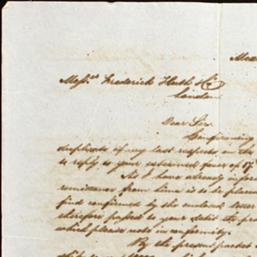 Mess.rs Frederick Huth & Co
London
Dear Sir
Confirming
duplicate of my last respects on the
to reply to your esteemed favor of 17
As I have already infor
remittance from time is to be plac
find confirmed by the enclosed letter
therefore passed to your debit the pro
which please note in conformity.
By the present packet